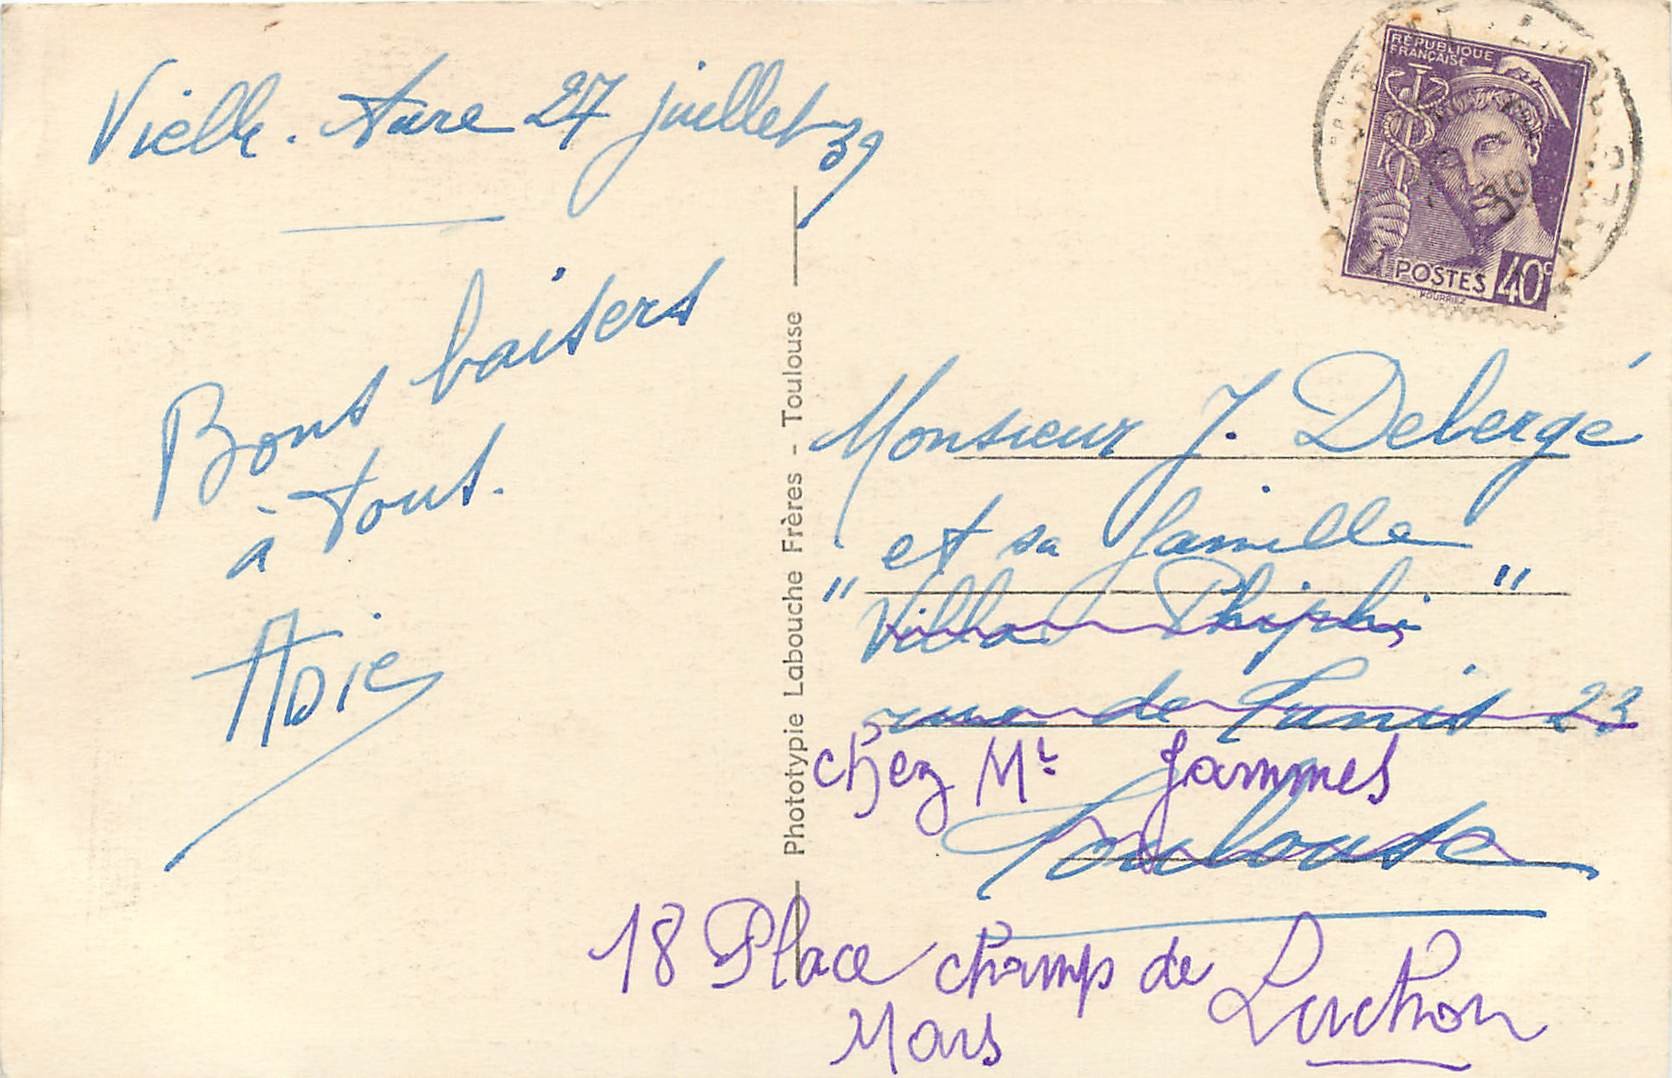 Vielle-Aure 27 juillet 39
Bons baisers
à tous.
Adie
Phototypie Labouche Frères - Toulouse
RÉPUBLIQUE
FRANÇAISE
POSTES 40c
Monsieur J. Delergé
et sa famille
"Villa Phiphi"
rue de Tunis 23
chez Mr Jammes
Toulouse
18 Place champ de
Mars
Luchon